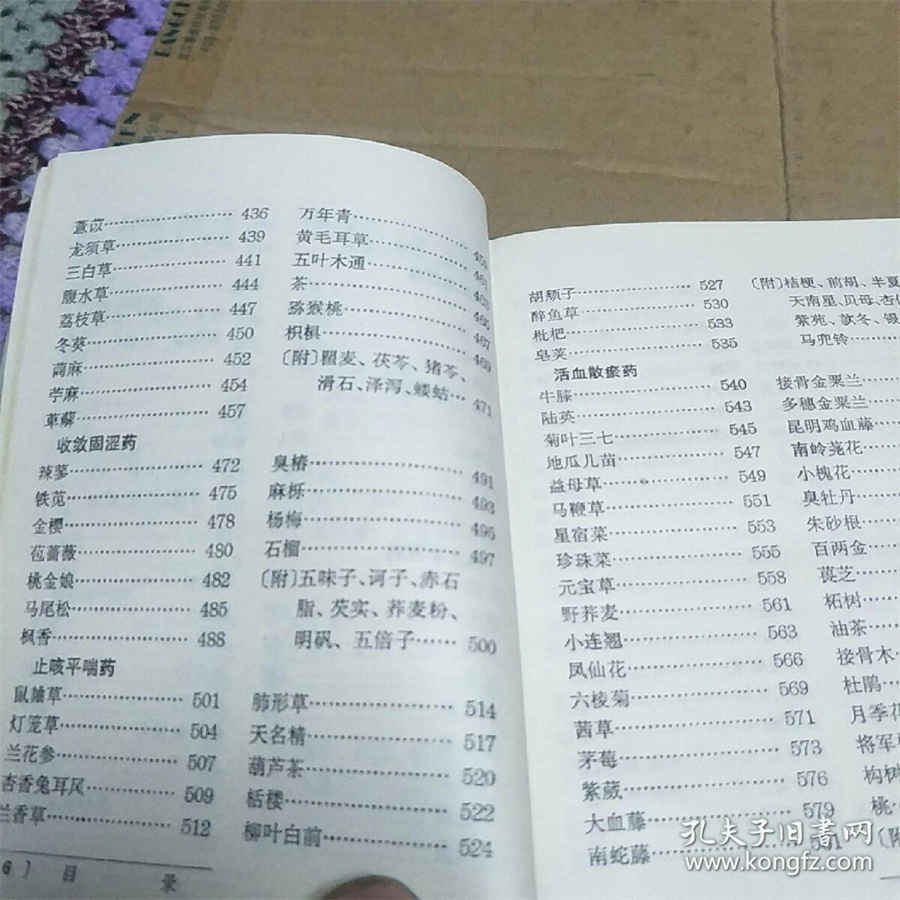 薏苡 436
龙须草 439
三白草 441
腹水草 444
荔枝草 447
冬葵 450
苘麻 452
苧麻 454
萆薢 457
万年青
黄毛耳草
五叶木通
茶
猕猴桃
枳椇
〔附〕瞿麦、茯苓、猪苓、
滑石、泽泻、蝼蛄 471
收敛固涩药
辣蓼 472
铁苋 475
金樱 478
苞蔷薇 480
桃金娘 482
马尾松 485
枫香 488
臭椿 491
麻栎 493
杨梅 495
石榴 497
〔附〕五味子、诃子、赤石
脂、芡实、荞麦粉、
明矾、五倍子 500
止咳平喘药
鼠妯草 501
灯笼草 504
兰花参 507
杏香兔耳风 509
兰香草 512
肺形草 514
天名精 517
葫芦茶 520
栝楼 522
柳叶白前 524
6〕目 录
胡颓子 527
醉鱼草 530
枇杷 533
皂荚 535
〔附〕桔梗、前胡、半夏
天南星、贝母、杏
紫苑、款冬、银
马兜铃
活血散瘀药
牛膝 540
陆英 543
菊叶三七 545
地瓜儿苗 547
益母草 549
马鞭草 551
星宿菜 553
珍珠菜 555
元宝草 558
野荞麦 561
小连翘 563
凤仙花 566
六棱菊 569
茜草 571
茅莓 573
紫葳 576
大血藤 579
南蛇藤 581
接骨金粟兰
多穗金粟兰
昆明鸡血藤
南岭荛花
小槐花
臭牡丹
朱砂根
百两金
萸芝
柘树
油茶
接骨木
杜鹃
月季花
将军
构树
桃
〔附
孔夫子旧书网
www.kongfz.com